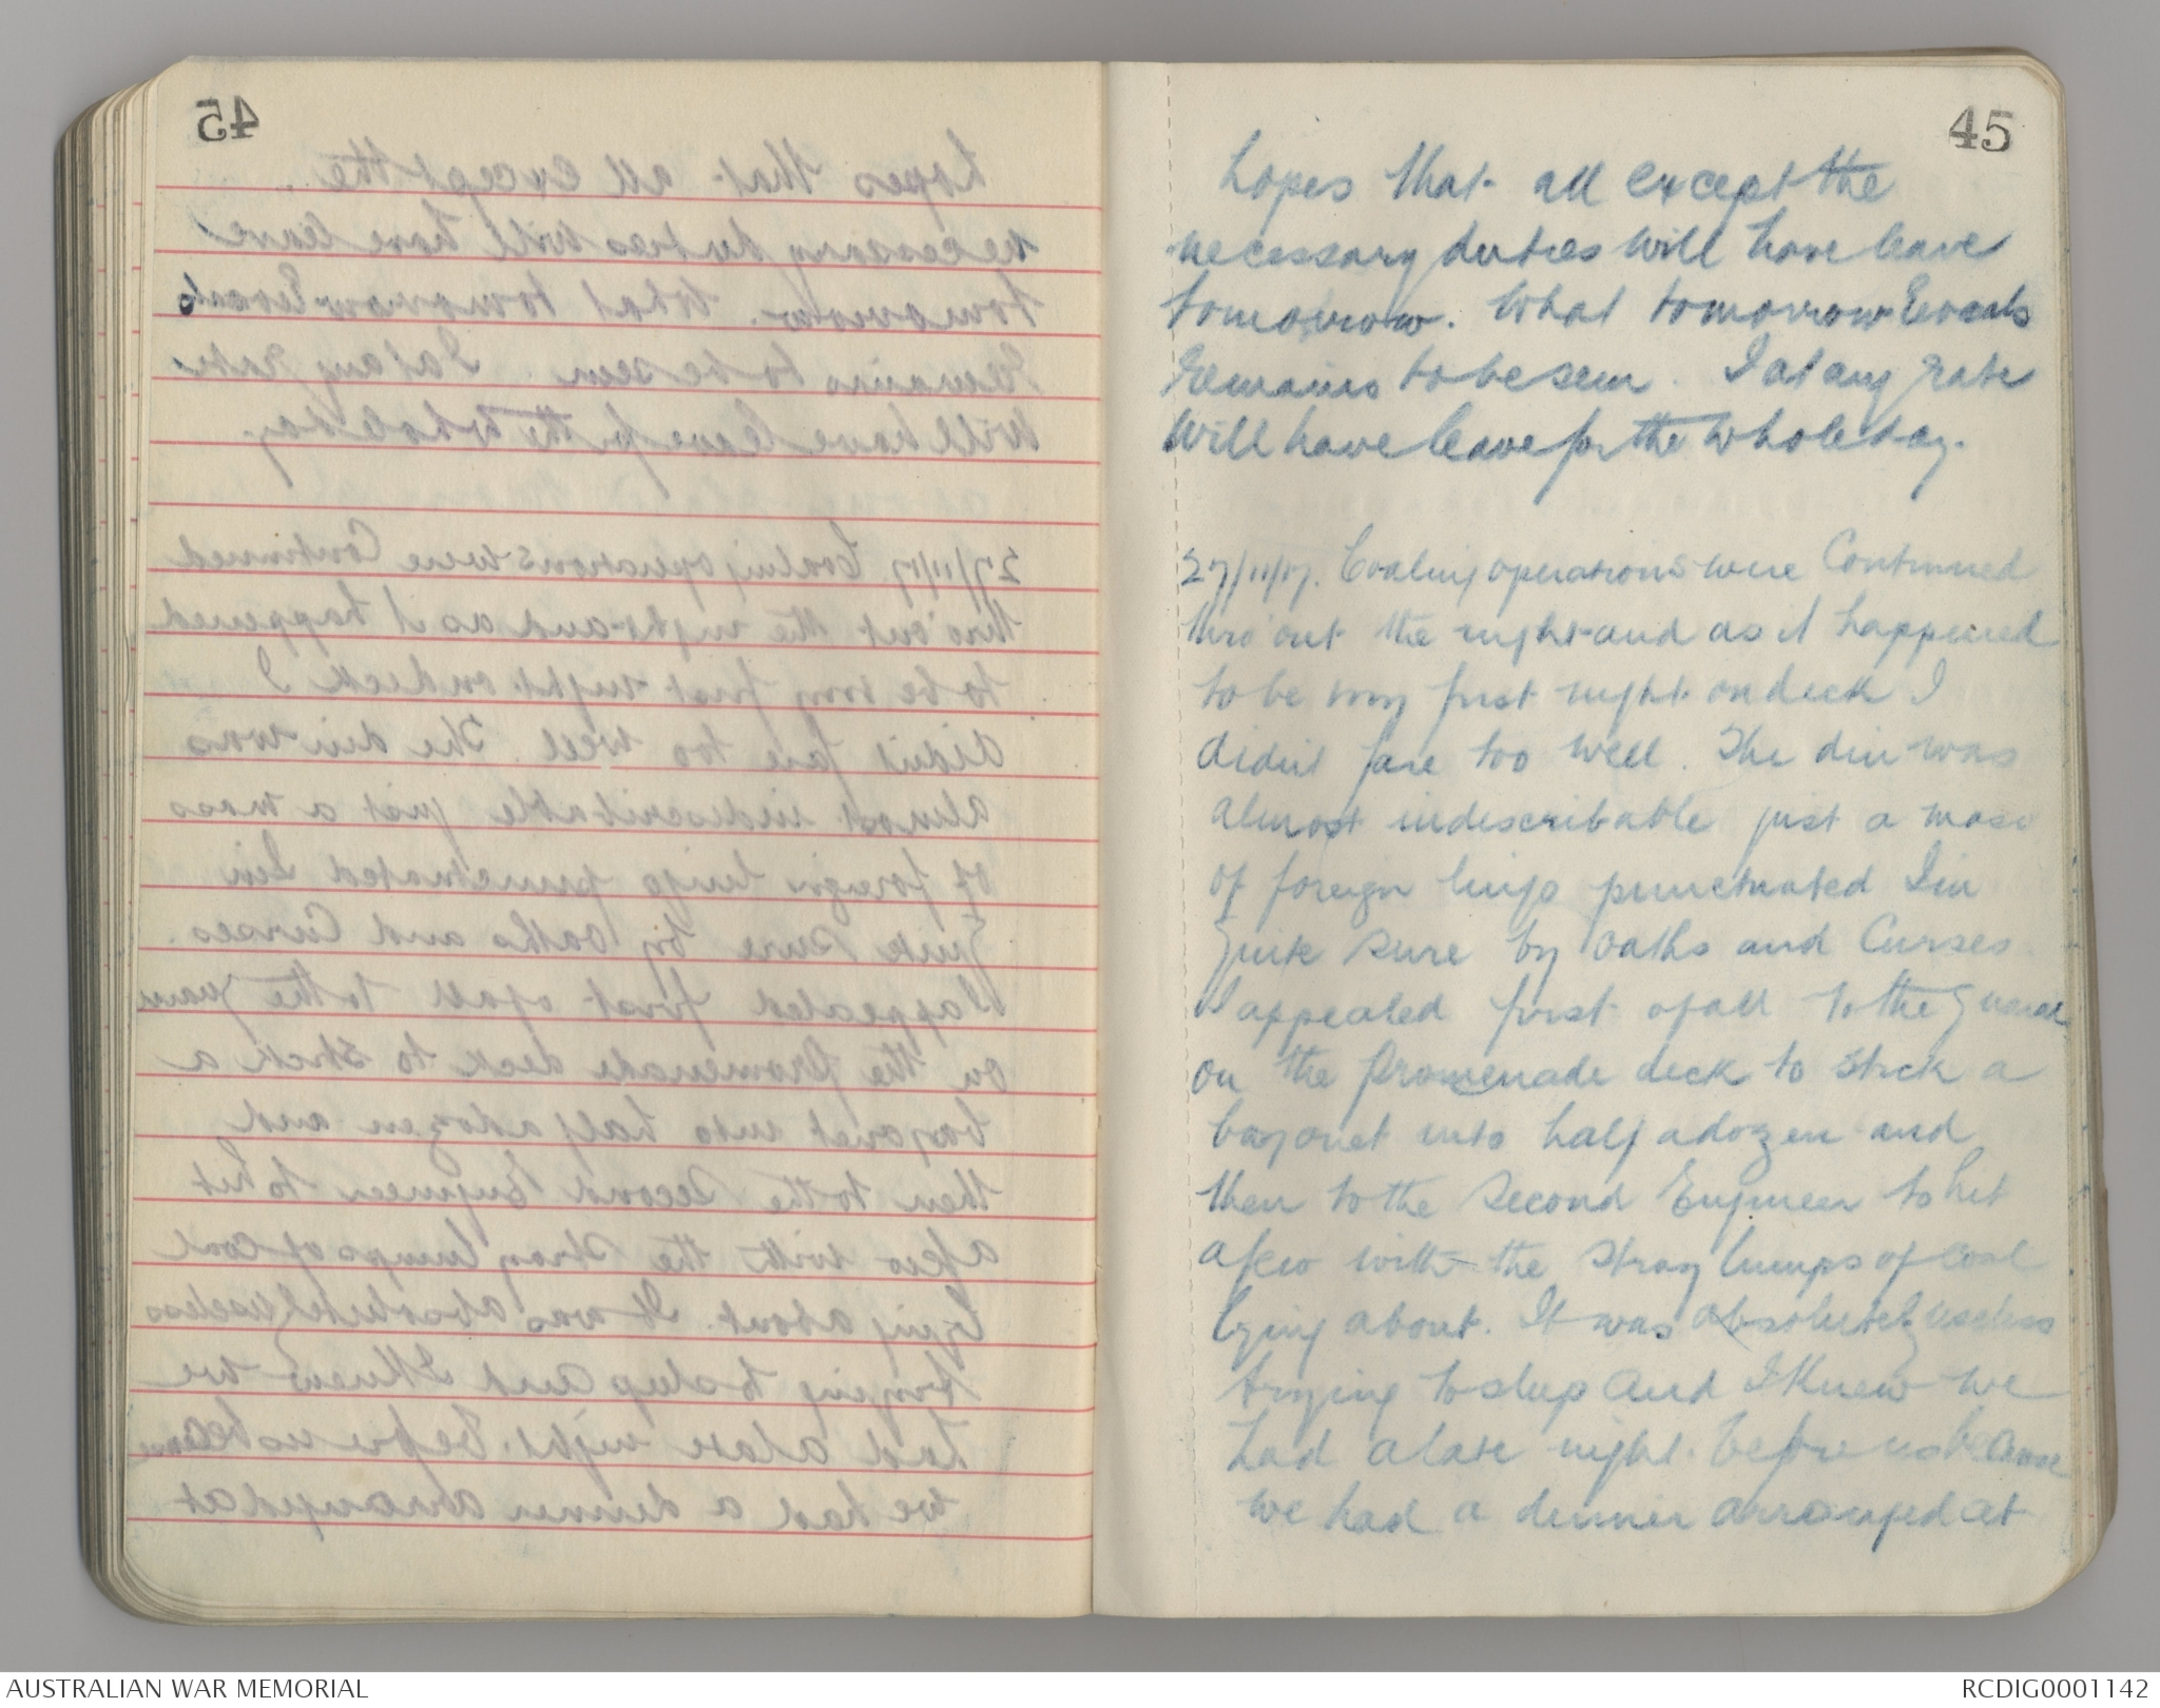 45
hopes that all except the
necessary duties will have leave
tomorrow. What tomorrow
remains to be seen. I at any rate
will have leave for the whole day.
27/11/17. Coaling operations were Continued
thro'out the night and as it happened
to be my first night on deck I
didn't fare too well. The din was
almost indescribable just a mass
of foreign lingo punctuated I'm
quite sure by oaths and Curses.
I appealed first of all to the guard
on the promenade deck to stick a
bayonet into half a dozen and
then to the Second Engineer to hit
a few with the stray lumps of coal
lying about. It was absolutely useless
trying to sleep and I knew we
had a late night before us because
we had a dinner arranged at
AUSTRALIAN WAR MEMORIAL
RCDIG0001142